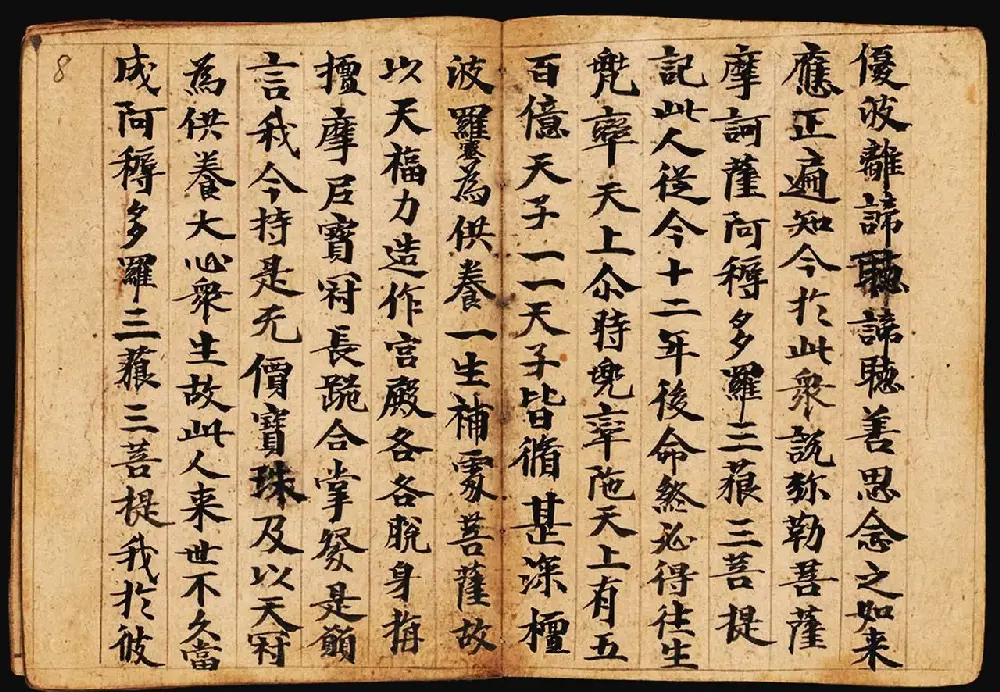 優波離諦聽諦聽善思念之如来
應正遍知今扵此衆說弥勒菩薩
摩訶薩阿耨多羅三藐三菩提
記此人従今十二年後命終必得往生
兜率天上尒時兜率陁天上有五
百億天子一一天子皆脩甚深檀
波羅蜜為供養一生補處菩薩故
以天福力造作宮殿各各脫身栴
檀摩尼寶冠長跪合掌發是願
言我今持是无價寶珠及以天冠
為供養大心衆生故此人来世不久當
成阿耨多羅三藐三菩提我扵彼
8